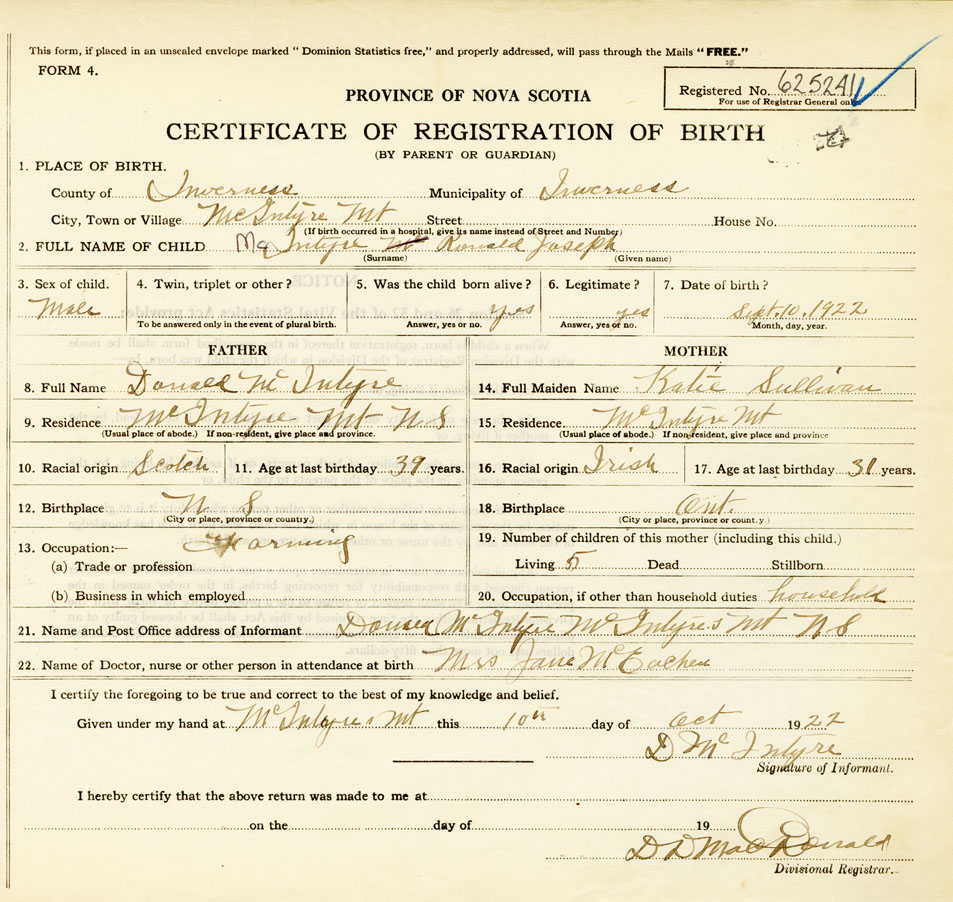 This form, if placed in an unsealed envelope marked "Dominion Statistics free," and properly addressed, will pass through the Mails "FREE."
FORM 4.
Registered No. 625241
For use of Registrar General only
PROVINCE OF NOVA SCOTIA
CERTIFICATE OF REGISTRATION OF BIRTH
(BY PARENT OR GUARDIAN)
1. PLACE OF BIRTH.
County of Inverness Municipality of Inverness
City, Town or Village McIntyre Mt Street House No.
(If birth occurred in a hospital, give its name instead of Street and Number)
2. FULL NAME OF CHILD McIntyre Ronald Joseph
(Surname) (Given name)
3. Sex of child. 4. Twin, triplet or other? 5. Was the child born alive? 6. Legitimate? 7. Date of birth?
Male yes yes Sept. 10. 1922
To be answered only in the event of plural birth. Answer, yes or no. Answer, yes or no. Month, day, year.
FATHER MOTHER
8. Full Name Donald McIntyre 14. Full Maiden Name Katie Sullivan
9. Residence McIntyre Mt N S 15. Residence McIntyre Mt
(Usual place of abode.) If non-resident, give place and province. (Usual place of abode.) If non-resident, give place and province
10. Racial origin Scotch 11. Age at last birthday 39 years. 16. Racial origin Irish 17. Age at last birthday 31 years.
12. Birthplace N S 18. Birthplace Ont.
(City or place, province or country.) (City or place, province or country.)
13. Occupation:— Farming 19. Number of children of this mother (including this child.)
(a) Trade or profession Living 5 Dead Stillborn
(b) Business in which employed 20. Occupation, if other than household duties household
21. Name and Post Office address of Informant McIntyre McIntyre's Mt N S
22. Name of Doctor, nurse or other person in attendance at birth Mrs Jane McEachen
I certify the foregoing to be true and correct to the best of my knowledge and belief.
Given under my hand at McIntyres Mt this 10th day of Oct 1922
D McIntyre
Signature of Informant.
I hereby certify that the above return was made to me at
on the day of 19
D D MacDonald
Divisional Registrar.